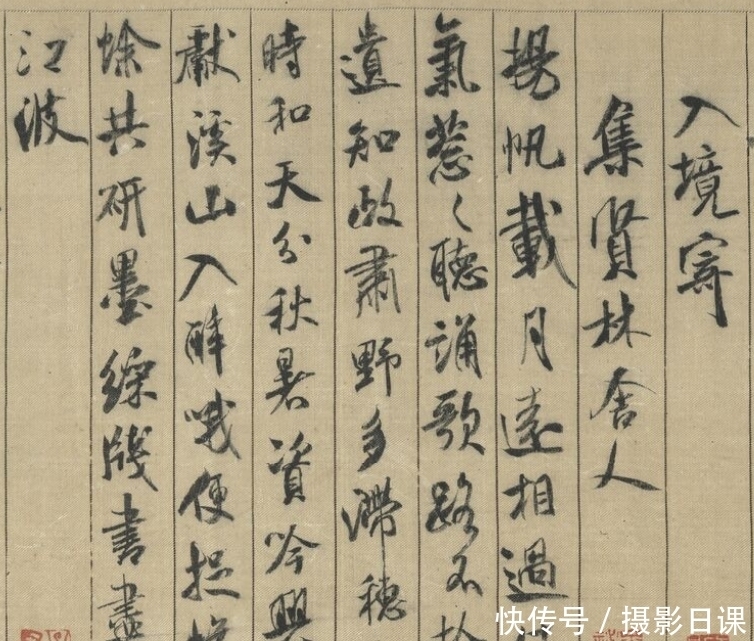 入境寄
集賢林舍人
揚帆載月遠相過
氣葱々聽誦歌路不
遺知政肅野多滯穗
時和天分秋暑資吟興
獻溪山入醉哦便捉
蜍共研墨綵牋書盡
江波
快传号 / 摄影日课